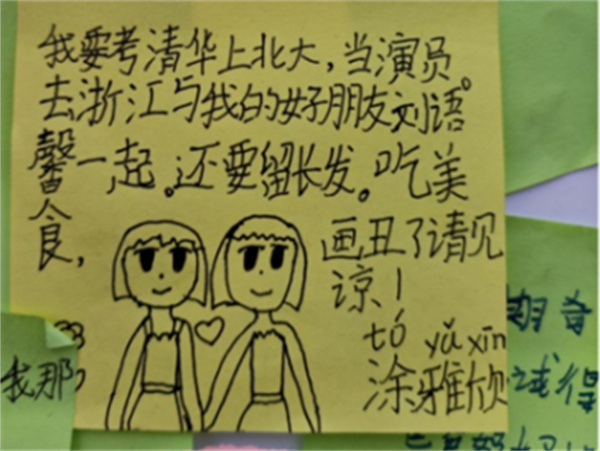 我要考清华上北大，当演员。
去浙江与我的好朋友刘语
馨一起。还要留长发。吃美
食，
画丑了请见
谅！
tú yǎ xīn
涂雅欣
我那
期